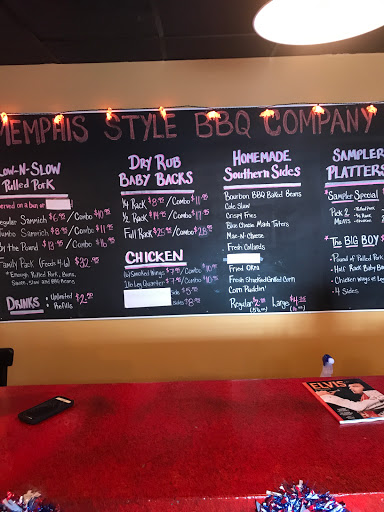 MEMPHIS STYLE BBQ COMPANY
LOW-N-SLOW
Pulled Pork
served on a bun or
Regular Sammich $6.95/Combo $10.95
Jumbo Sammich $8.95/Combo $11.95
By the Pound $13.95/Combo $16.95
Family Pack (Feeds 4-6) $32.95
* Enough Pulled Pork, Buns,
Sauce, Slaw and BBQ Beans
DRINKS • Unlimited Refills $2.50
DRY RUB
BABY BACKS
1/4 Rack $8.95/Combo $11.95
1/2 Rack $14.95/Combo $17.95
Full Rack $25.95/Combo $28.95
CHICKEN
Smoked Wings $7.95/Combo
Leg Quarter $7.95/Combo
side $5.95
sides $8.95
HOMEMADE
Southern Sides
Bourbon BBQ Baked Beans
Cole Slaw
Crispy Fries
Blue Cheese Mash Taters
Mac-N-Cheese
Fresh Collards
Fried Okra
Fresh Shucked Grilled Corn
Corn Puddin'
Regular $2.50 Large $4.25
SAMPLER
PLATTERS
Sampler Special
Pick 2 Meats
The BIG BOY
Pound of Pulled Pork
Half Rack Baby Back
Chicken Wings or Leg
4 Sides
ELVIS